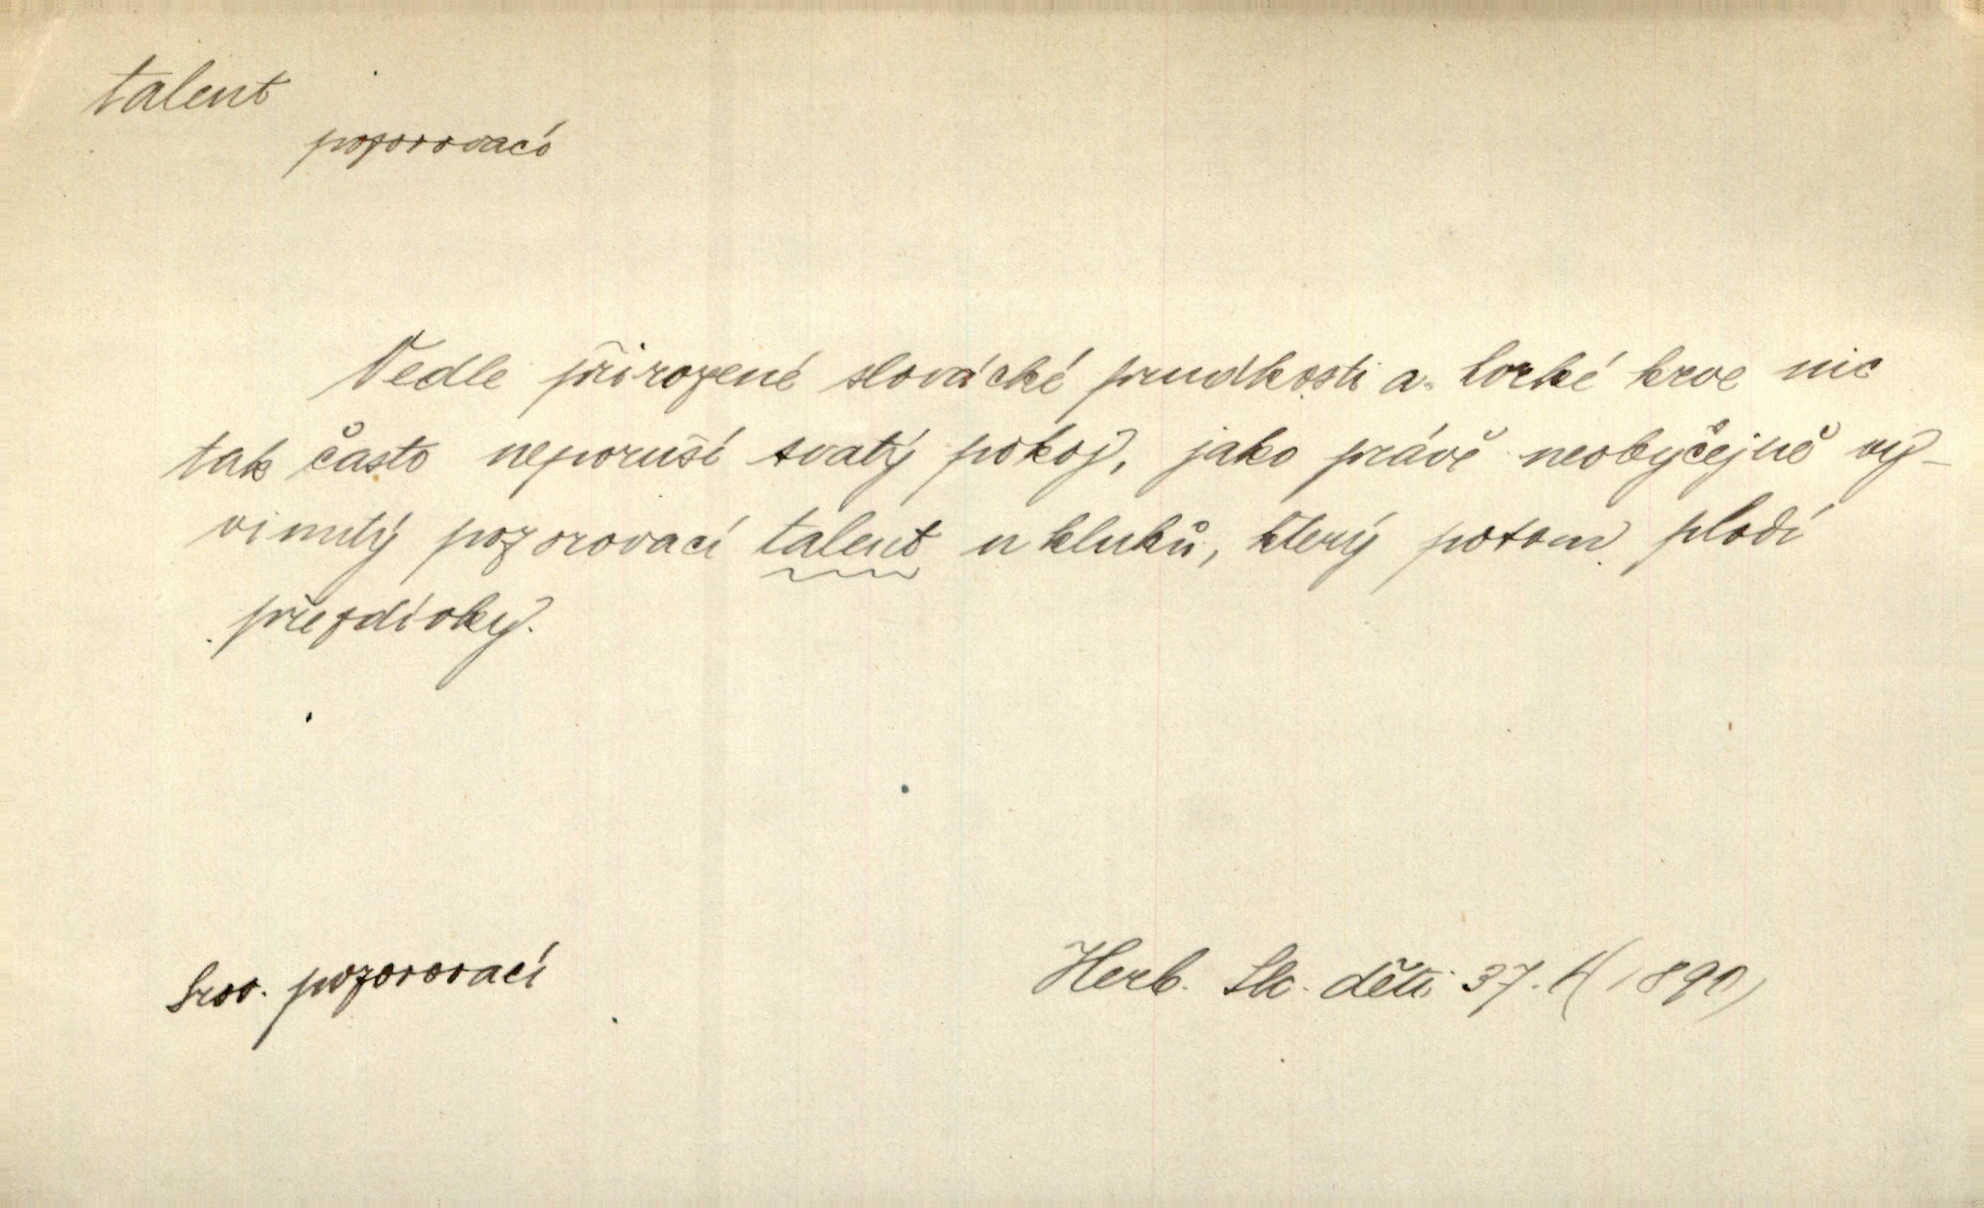 talent
pozorovací
Vedle přirozené slovácké prudkosti a horké krve nic
tak často neporuší svatý pokoj, jako právě neobyčejně vy-
vinutý pozorovací talent u kluků, který potom plodí
přezdívky.
Srov. pozorovací
Herb. Slc. děti 37. (1890)